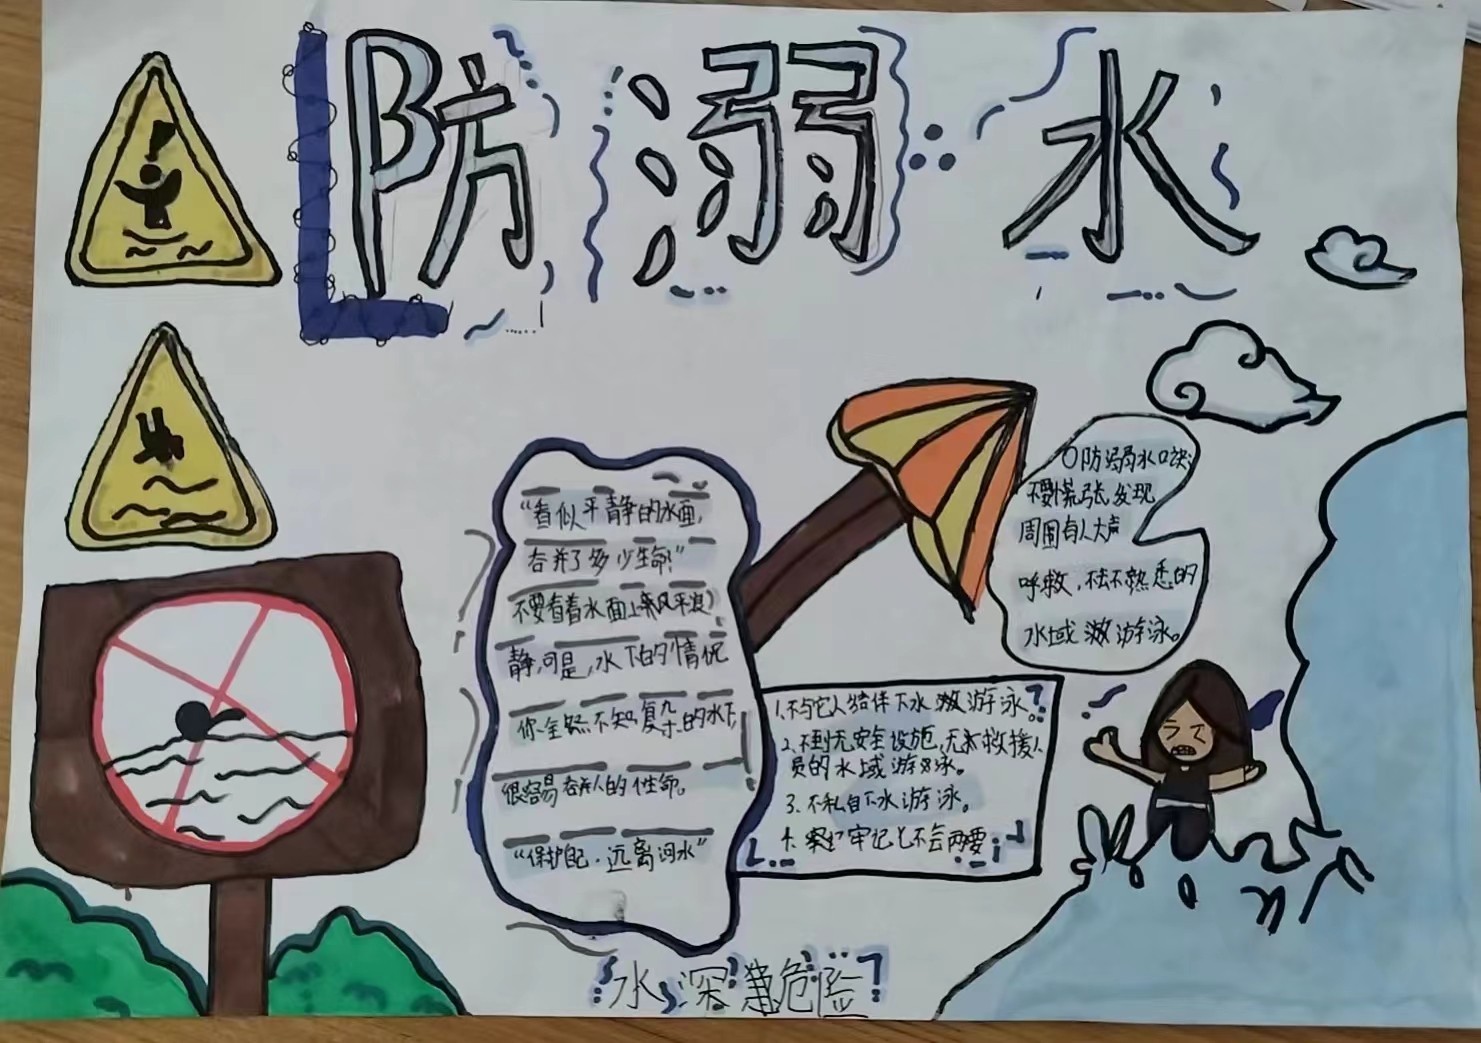 防溺水
"看似平静的水面,
吞并了多少生命"
不要看着水面上乘风平浪
静,可是,水下的情况
你全然不知,复杂的水下,
很容易吞并人的性命。
"保护自己·远离河水"
防溺水口诀:
不要慌张发现
周围有人大声
呼救,不去不熟悉的
水域游泳。
1.不与它人结伴下水游泳。
2.不到无安全设施,无救援人
员的水域游泳。
3.不私自下水游泳。
4.牢记七不会两要
水深危险